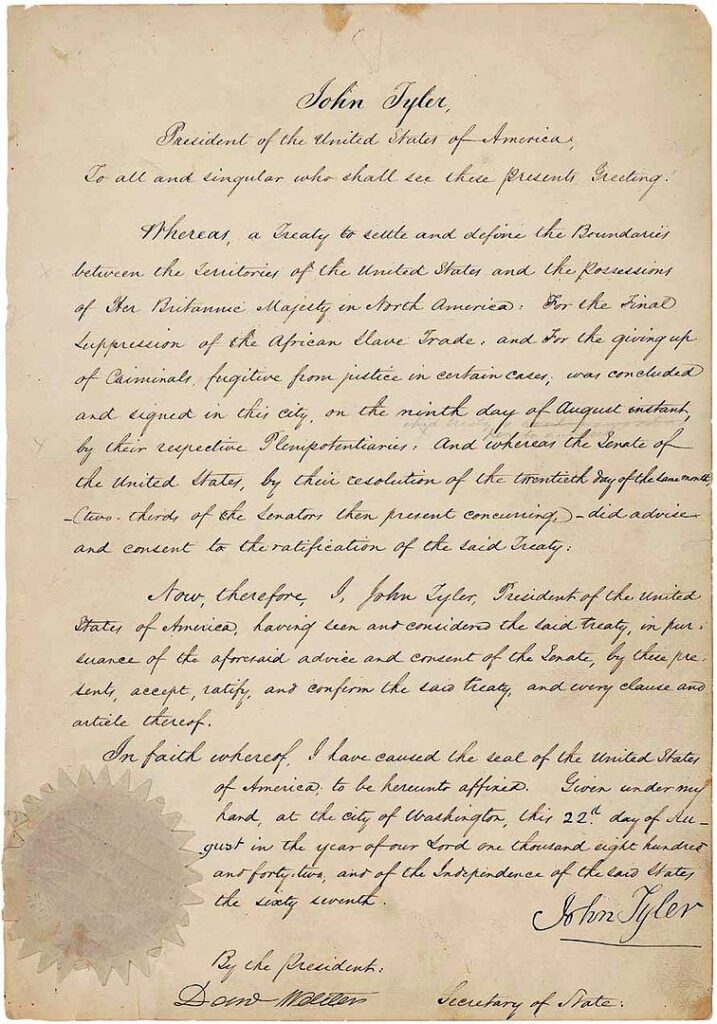 John Tyler,
President of the United States of America,
To all and singular who shall see these Presents, Greeting:
Whereas, a Treaty to settle and define the Boundaries
between the Territories of the United States and the possessions
of Her Britannic Majesty in North America: For the Final
Suppression of the African Slave Trade: and For the giving up
of Criminals, fugitive from justice in certain cases, was concluded
and signed in this city, on the ninth day of August instant,
by their respective Plenipotentiaries: And whereas the Senate of
the United States, by their resolution of the twentieth day of the same month
-(two-thirds of the Senators then present concurring,)-did advise
and consent to the ratification of the said Treaty:
Now, therefore, I, John Tyler, President of the United
States of America, having seen and considered the said treaty, in pur-
suance of the aforesaid advice and consent of the Senate, by these pre-
sents, accept, ratify, and confirm the said treaty, and every clause and
article thereof.
In faith whereof, I have caused the seal of the United States
of America, to be hereunto affixed. Given under my
hand, at the city of Washington, this 22d. day of Au-
gust in the year of our Lord one thousand eight hundred
and forty-two, and of the Independence of the said States
the sixty seventh.
John Tyler
By the President:
Danl Webster Secretary of State: